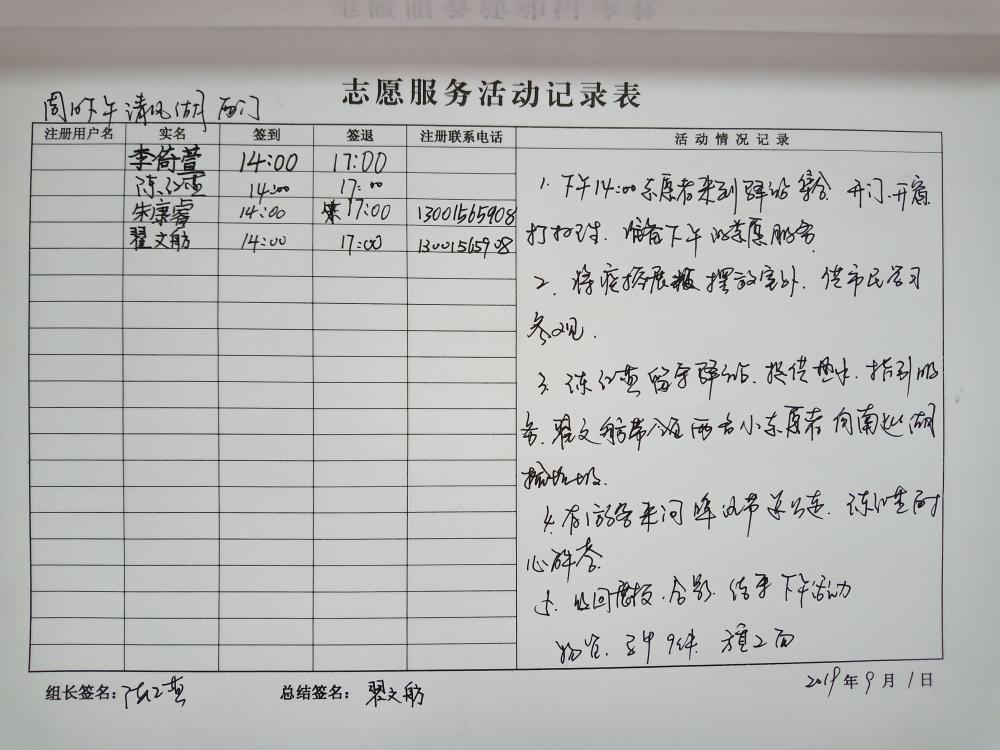 志愿服务活动记录表
周日下午清风湖西门
注册用户名 实名 签到 签退 注册联系电话 活动情况记录
李倚萱 14:00 17:00
陈红燕 14:00 17:00
朱康睿 14:00 17:00 13001565908
翟文舫 14:00 17:00 13001565908
1. 下午14:00志愿者来到驿站集合 开门、开窗
打扫卫生、准备下午的志愿服务
2、将疫 展板摆放室外、供市民学习
参观.
3、陈红燕留守驿站、提供热水、指引服
务、翟文舫带领两名小志愿者向南巡湖
捡垃圾.
4. 有游客来问 陈红燕耐
心解答
5、收回展板、合影、结束下午活动
物资、马甲9件 旗2面
组长签名:陈红燕 总结签名:翟文舫
2019年9月1日